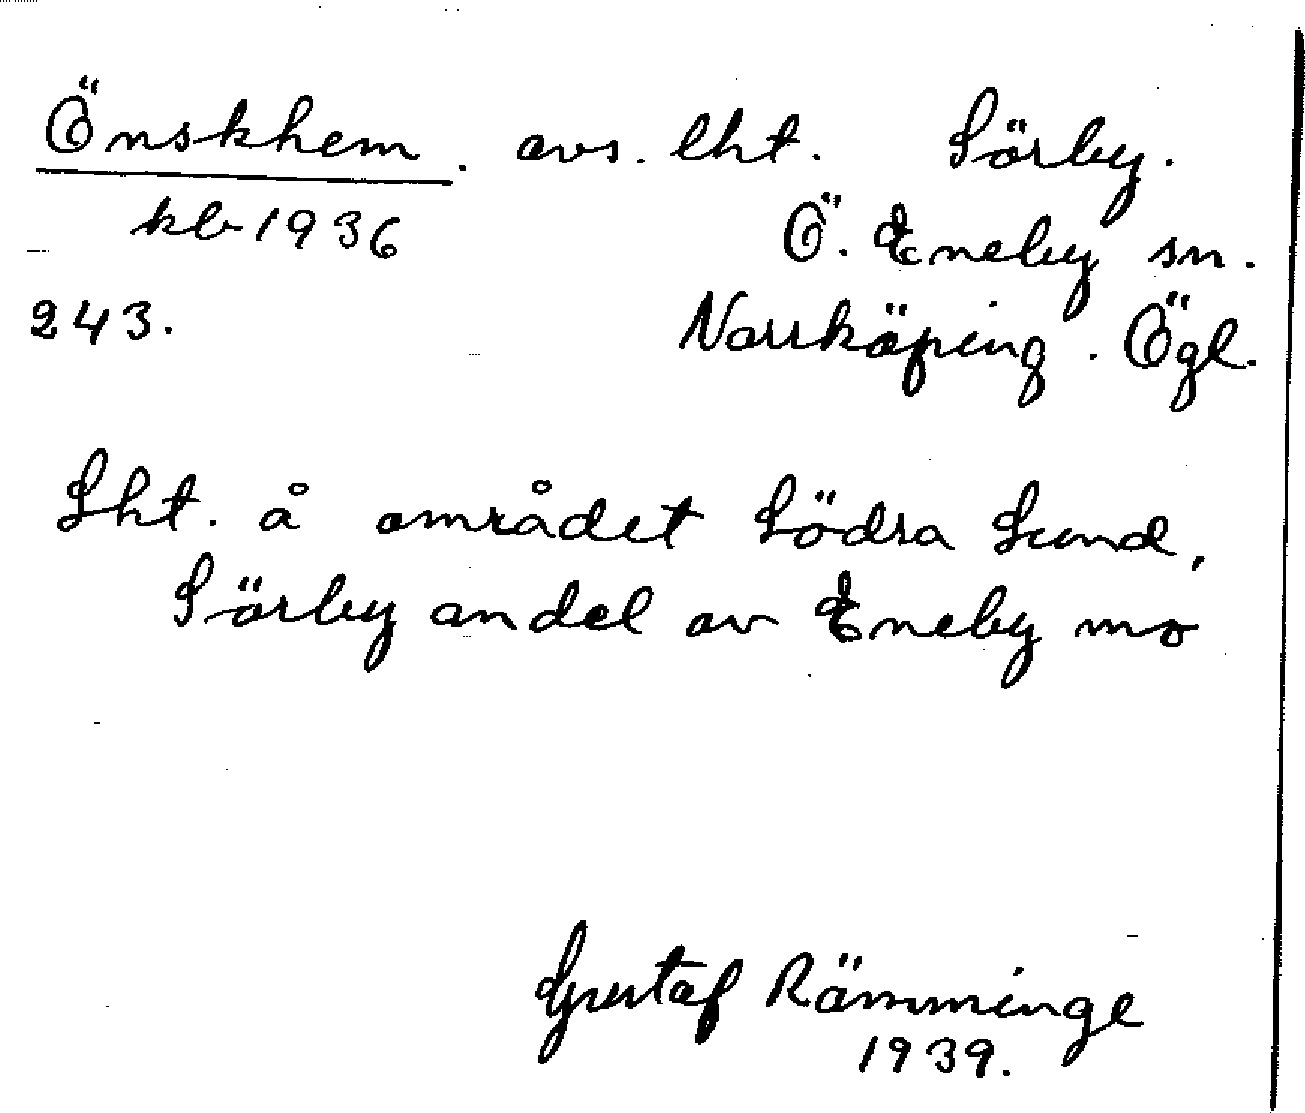 Önskhem. avs. lht. Sörby.
kb 1936 Ö. Eneby sn.
243. Norrköping. Ögl.
Lht. å området Södra Lund,
Sörby andel av Eneby mo
Gustaf Rämminge
1939.